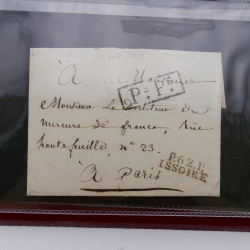 À
P.P.
Monsieur Le Directeur du
mercure de france, Rüe
hautefeuille, n° 23.
P.62.P.
ISSOIRE
À Paris